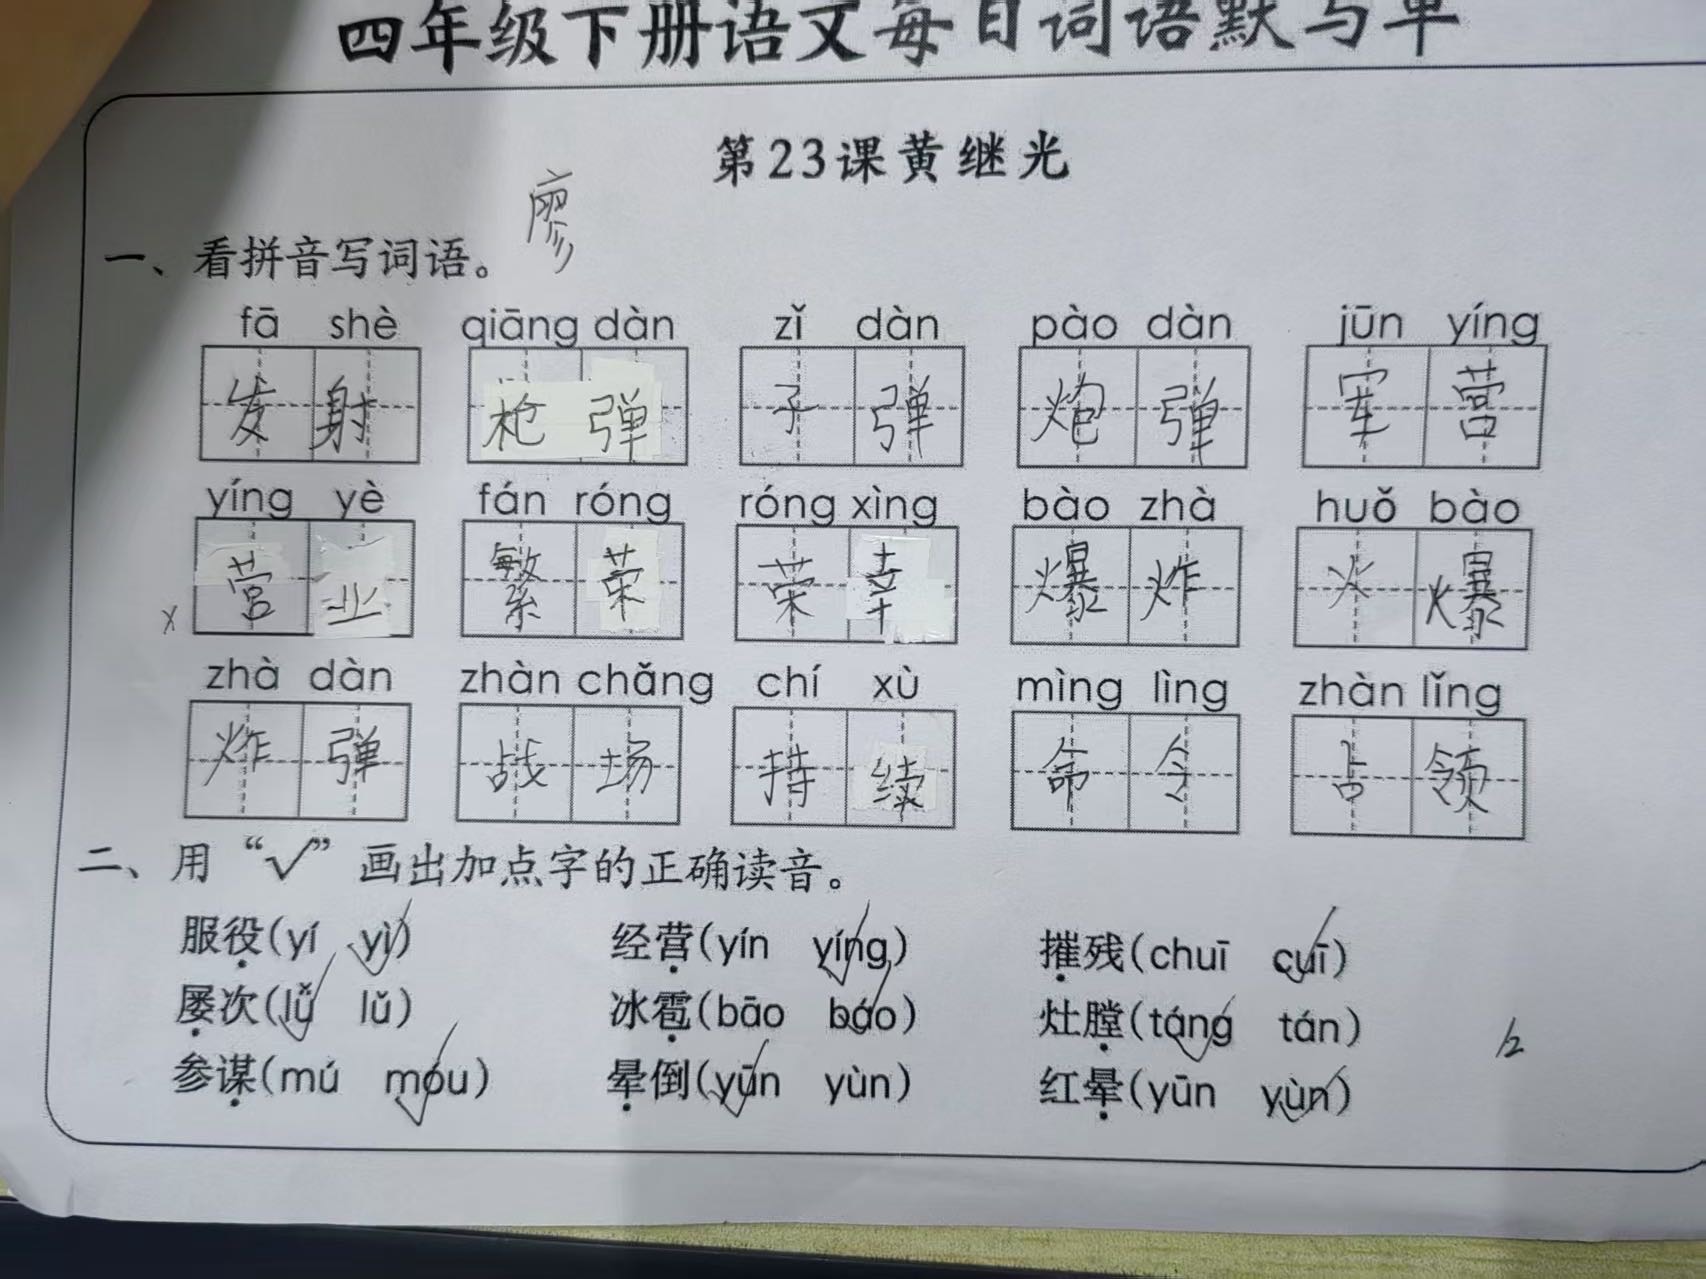 四年级下册语文每日词语默写单
第23课黄继光
廖
一、看拼音写词语。
fā shè qiāng dàn zǐ dàn pào dàn jūn yíng
发射 枪弹 子弹 炮弹 军营
yíng yè fán róng róng xìng bào zhà huǒ bào
x 营业 繁荣 荣幸 爆炸 火爆
zhà dàn zhàn chǎng chí xù mìng lìng zhàn lǐng
炸弹 战场 持续 命令 占领
二、用“√”画出加点字的正确读音。
服役(yí yì√) 经营(yín yíng√) 摧残(chuī cuī√)
屡次(lǚ√ lǔ) 冰雹(bāo báo√) 灶膛(táng√ tán)
参谋(mú móu√) 晕倒(yūn√ yùn) 红晕(yūn yùn√)